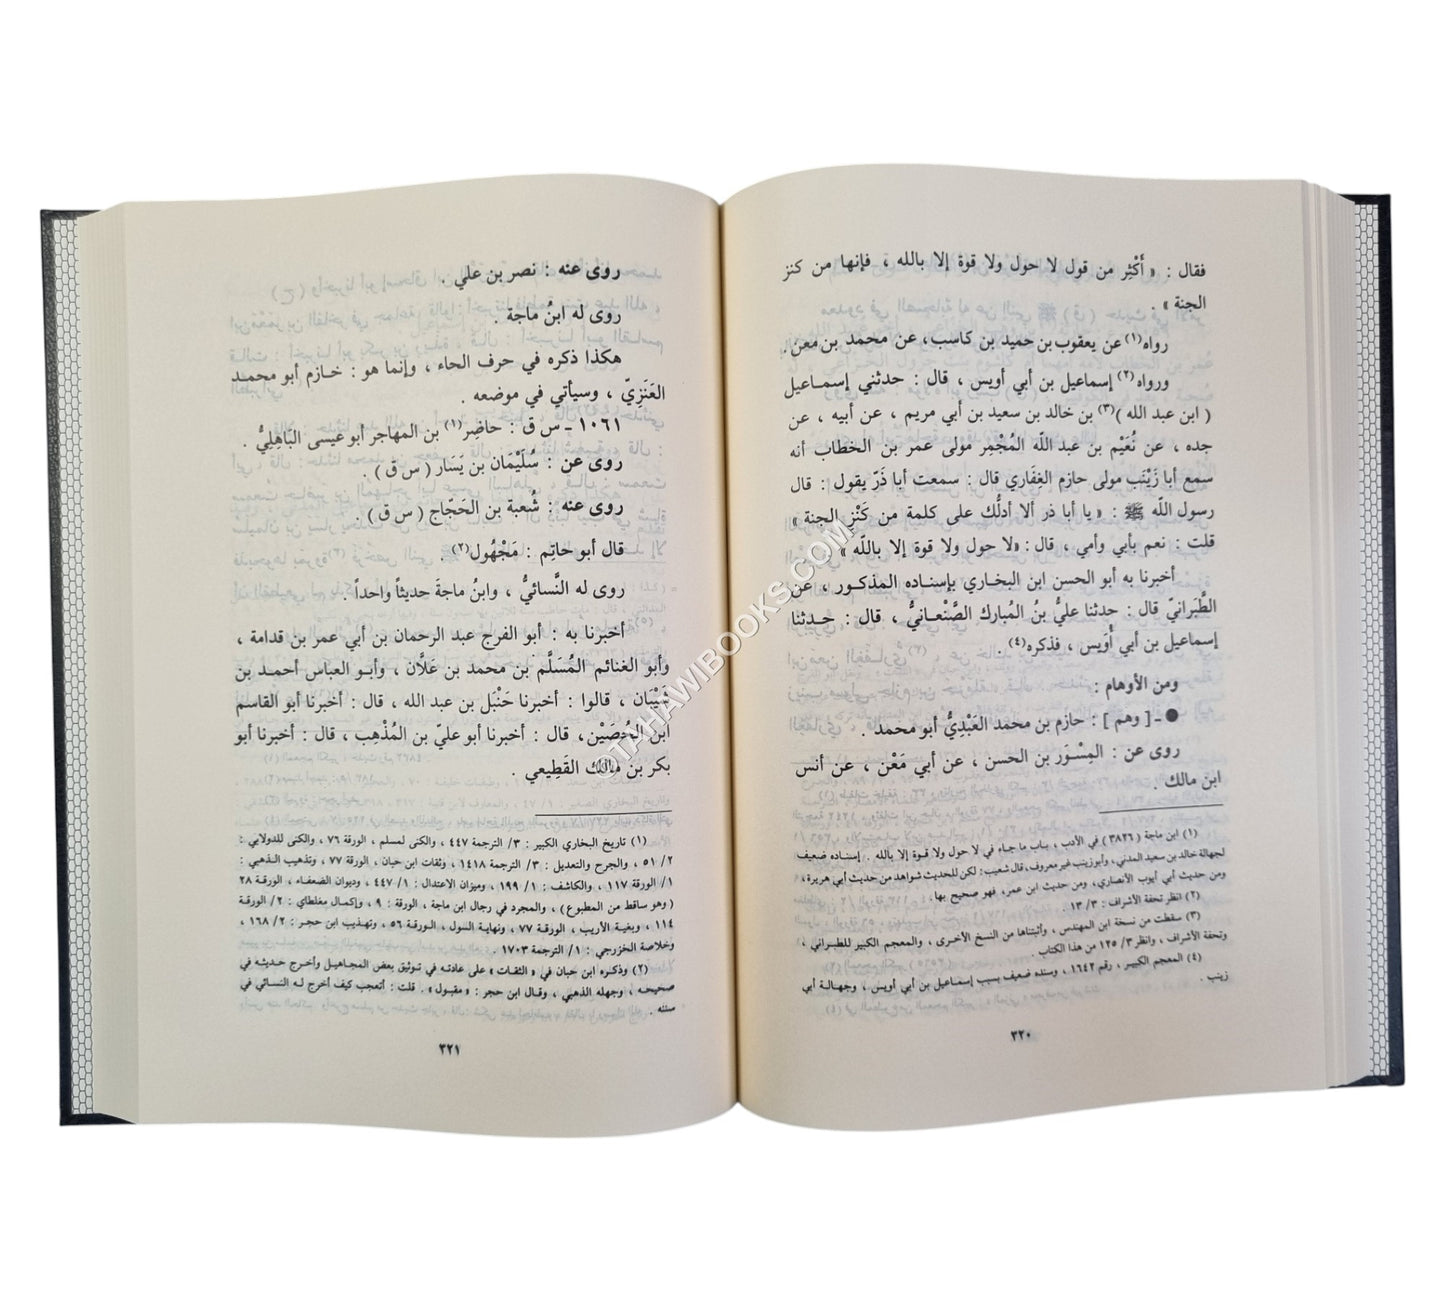 فقال : « أَكْثِر من قول لا حول ولا قوة إلا بالله ، فإنها من كنز
الجنة » .
رواه(١) عن يعقوب بن حميد بن كاسب، عن محمد بن معن .
ورواه(٢) إسماعيل بن أبي أويس ، قال : حدثني إسماعيل
( ابن عبد الله )(٣) بن خالد بن سعيد بن أبي مريم ، عن أبيه ، عن
جده ، عن نُعَيْم بن عبد اللّه المُجْمِر مولى عمر بن الخطاب أنه
سمع أبا زَيْنَب مولى حازم الغِفَاري قال : سمعت أبا ذَرّ يقول : قال
رسول اللّه ﷺ : « يا أبا ذر ألا أدلُّك على كلمة من كَنْزِ الجنة »
قلت : نعم بأبي وأمي ، قال : «لا حول ولا قوة إلا باللّه»
أخبرنا به أبو الحسن ابن البخاري بإسناده المذكور ، عن
الطَّبَرانيّ قال : حدثنا عليُّ بنُ المُبارك الصَّنْعانيُّ ، قال : حدثنا
إسماعيل بن أبي أُوَيس ، فذكره(٤) .
ومن الأوهام :
● ـ [ وهم ] : حازم بن محمد العَبْدِيُّ أبو محمد .
روى عن : المِسْوَر بن الحسن ، عن أبي مَعْن ، عن أنس
ابن مالك .
(١) ابن ماجة ( ٣٨٢٦ ) في الأدب ، باب ما جاء في لا حول ولا قوة إلا بالله . إسناده ضعيف
لجهالة خالد بن سعيد المدني، وأبو زينب غير معروف، قال شعيب : لكن للحديث شواهد من حديث أبي هريرة ،
ومن حديث أبي أيوب الأنصاري، ومن حديث ابن عمر، فهو صحيح بها .
(٢) انظر تحفة الأشراف : ٣/ ١٣ .
(٣) سقطت من نسخة ابن المهندس ، وأثبتناها من النسخ الأخرى ، والمعجم الكبير للطبراني ،
وتحفة الأشراف ، وانظر ٣/ ١٢٥ من هذا الكتاب .
(٤) المعجم الكبير ، رقم ١٦٤٢ ، وسنده ضعيف بسبب إسماعيل بن أبي أويس ، وجهالة أبي
زينب .
٣٢٠
روى عنه : نصر بن علي .
روى له ابنُ ماجة .
هكذا ذكره في حرف الحاء ، وإنما هو : خازم أبو محمد
العَنَزِيّ ، وسيأتي في موضعه .
١٠٦١ - س ق : حاضِر(١) بن المهاجر أبو عيسى البَاهِلِيُّ .
روى عن : سُلَيْمان بن يَسَار ( س ق ) .
روى عنه : شُعبة بن الحَجّاج ( س ق ) .
قال أبو حاتِم : مَجْهُول(٢) .
روى له النَّسائيُّ ، وابنُ ماجةَ حديثاً واحداً .
أخبرنا به : أبو الفرج عبد الرحمان بن أبي عمر بن قدامة ،
وأبو الغنائم المُسَلَّم بن محمد بن عَلاَّن ، وأبو العباس أحمد بن
شَيْبَان ، قالوا : أخبرنا حَنْبَل بن عبد الله ، قال : أخبرنا أبو القاسم
ابن الحُصَيْن، قال : أخبرنا أبو عليّ بن المُذْهِب ، قال : أخبرنا أبو
بكر بن مالك القَطِيعي .
(١) تاريخ البخاري الكبير : ٣/ الترجمة ٤٤٧ ، والكنى لمسلم ، الورقة ٧٦ ، والكنى للدولابي :
٢/ ٥١ ، والجرح والتعديل : ٣/ الترجمة ١٤١٨ ، وثقات ابن حبان ، الورقة ٧٧ ، وتذهيب الذهبي :
١/ الورقة ١١٧ ، والكاشف : ١/ ١٩٩ ، وميزان الاعتدال : ١/ ٤٤٧ ، وديوان الضعفاء ، الورقة ٢٨
( وهو ساقط من المطبوع ) ، والمجرد في رجال ابن ماجة ، الورقة : ٩ ، وإكمال مغلطاي : ٢/ الورقة
١١٤ ، وبغية الأريب ، الورقة ٧٧ ، ونهاية السول ، الورقة ٥٦ ، وتهذيب ابن حجر : ٢/ ١٦٨ ،
وخلاصة الخزرجي : ١/ الترجمة ١٧٠٣ .
(٢) وذكره ابن حبان في « الثقات » على عادته في توثيق بعض المجاهيل وأخرج حديثه في
صحيحه ، وجهله الذهبي ، وقال ابن حجر : «مقبول» . قلت : أتعجب كيف أخرج له النسائي في
سننه .
٣٢١
©TAHAWIBOOKS.COM